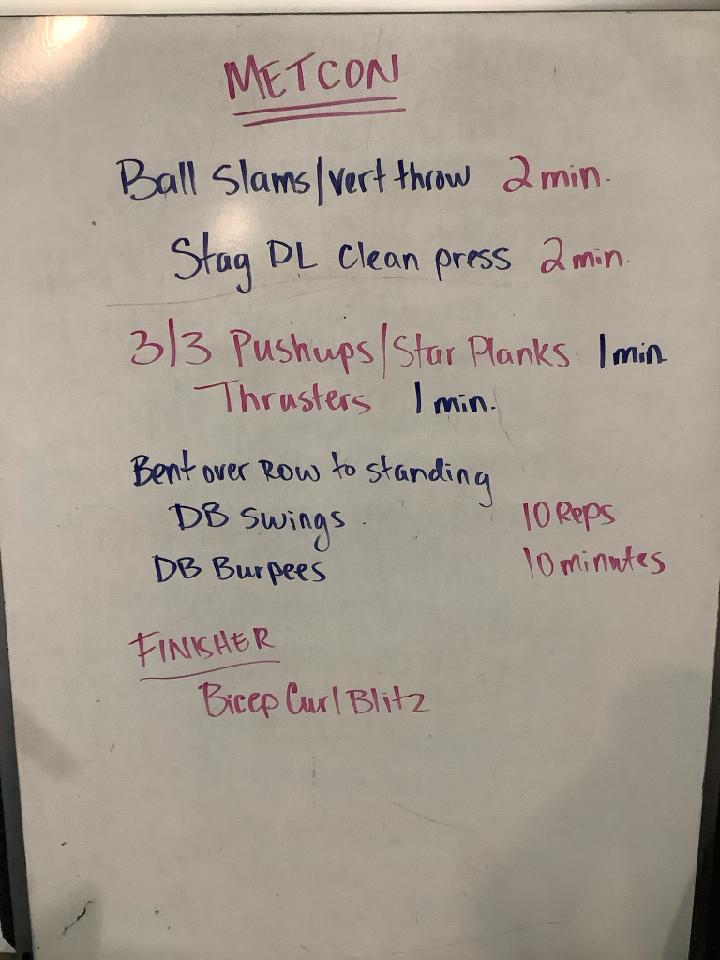 METCON
Ball Slams/vert throw 2 min.
Stag DL Clean press 2 min.
3/3 Pushups/Star Planks 1 min
Thrusters 1 min.
Bent over Row to standing
DB Swings 10 Reps
DB Burpees 10 minutes
FINISHER
Bicep Curl Blitz